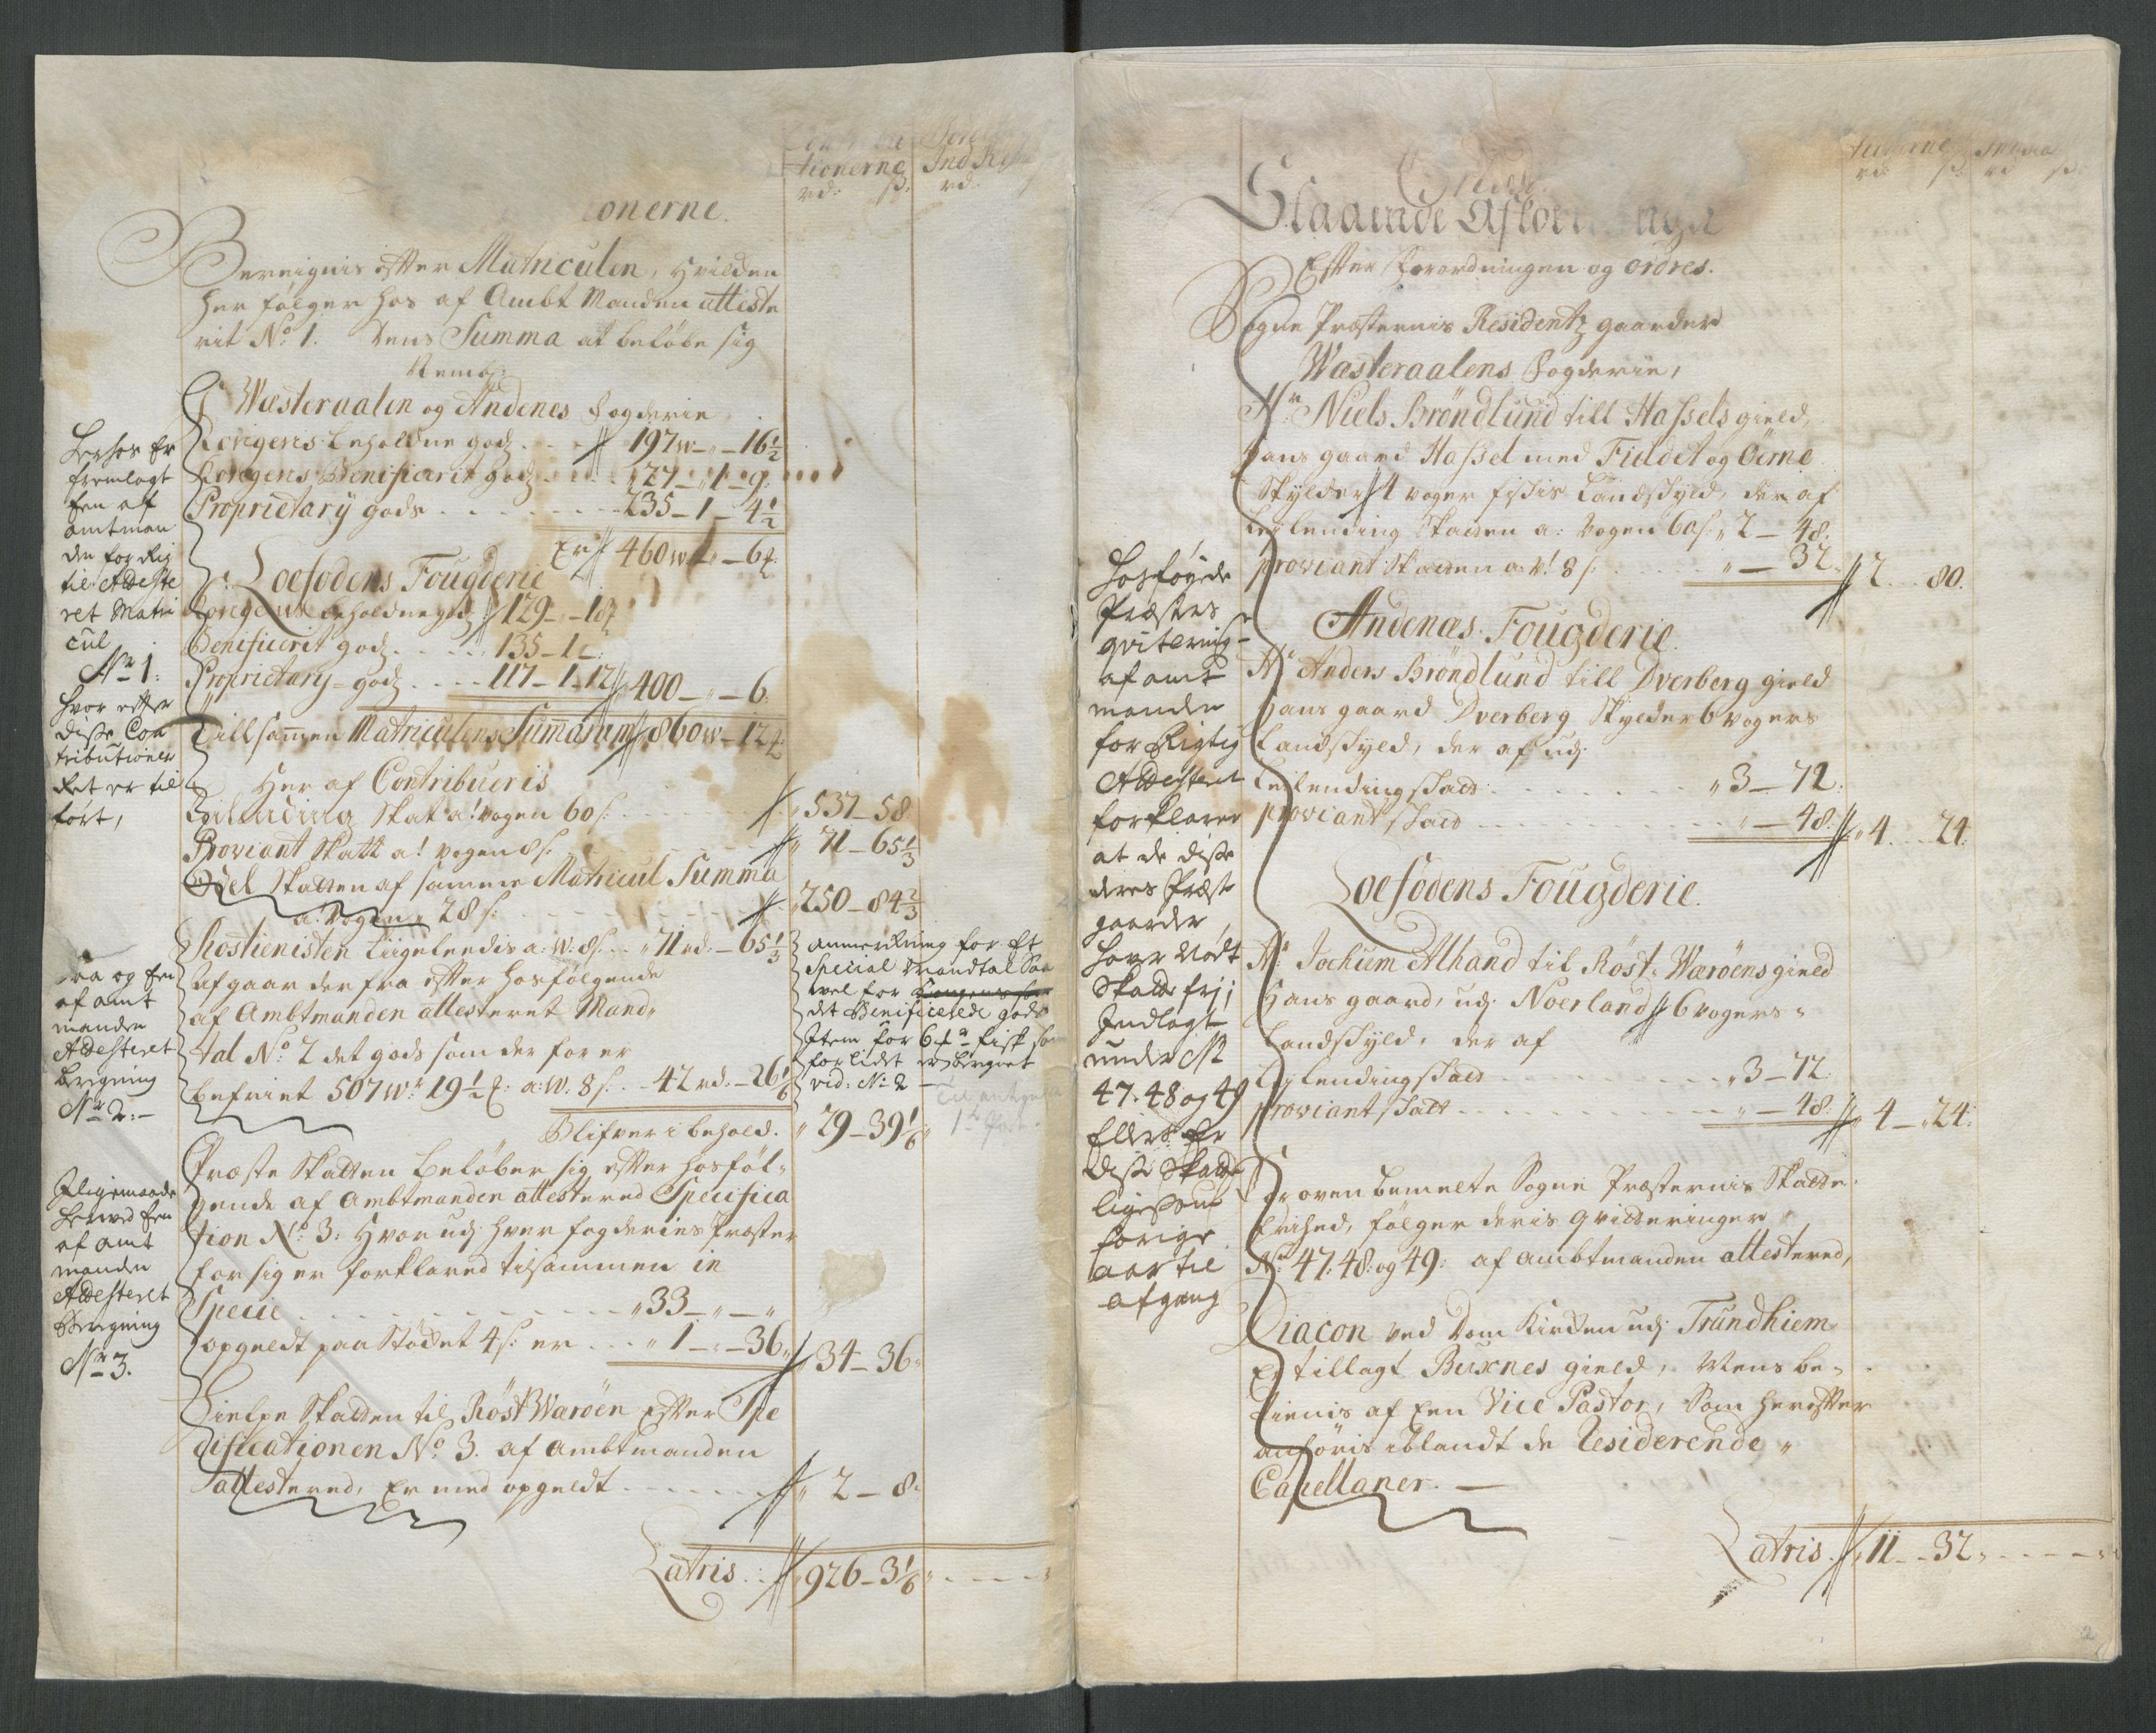 tionerne
rd: ß:
Ind
rd.
onerne.
Bereignis efter Matriculen, hvilden
her følger hos af Ambt Manden atteste
rit No: 1. dens Summa at beløbe sig
Nemb:
Wæsteraalen og Andenes fogderie
Kongens beholdne godz 197 w - " - 16½
Kongens Benificerit godz 27 - 1 - 9:
Proprietary gods 235 - 1 - 4½
Er 460 w " - 6 ₰:
Loefodens Fougderie
Kongens beholdne godz 129 -
Benificerit godz 135 - 1
Proprietary godz 117 - 1 - 12 400 - " - 6:
Tillsamen Matriculens Summarum 860 w - 12 ₰:
Her af Contribueris
Leilending Skat a! vogen 60 ß: 537 - 58
Proviant Skatt a! vogen 8 ß. 71 - 65⅓
Odel Skatten af samme Matricul Summa
a: vogen 28 ß: 250 - 84⅔
Rostienisten liigeleedis a: W: 8 ß: 71 rd: - 65⅓
afgaar der fra efter hosfølgende
af Ambtmanden attesteret Mand-
tal No: 2 det gods som der for er
befriet 507 W: 19½ ₰: a: W: 8 ß: 42 rd: - 26⅙
Blifver i behold. 29 - 39⅙
Præste Skatten beløber sig efter hosføl-
gende af Ambtmanden attestered Specifica
tion No: 3: Hvor udj hver fogderies Præster
for sig er forklared tilsammen in
Specie 33 - " - "
opgeldt paa Stødet 4 ß: er 1 - 36 34 - 36
Hielpe Skatten til Røst Warøen efter Spe
cificationen No: 3. af Ambtmanden
attestered, er med opgeldt 2 - 8
Latris 926 - 3⅙
Herhos er
fremlagt
een af
amtman
den for Rig
tig Atteste
ret Matri
cul
No 1:
hvor efter
disse Con
tributioner
ret er til
ført,
og een
af amt
manden
Attesteret
beregning
No 2:
Jligemaade
herved een
af amt
manden
Attesteret
Beregning
No 3.
anmerckning for et
Special Mandtal Saa
vel for Kongens som
det Benificerede gods
Item for 6 fisk
for lidet er beregnet
vid: No: 2
tionerne
rd ß
rd ß
Staaende
Efter forordningen og ordres.
Sogne Præsternis Residentz gaarder
Wæsteraalens Fogderie,
Hr: Niels Bröndlund till Hassels gield,
hans gaard Hassel med Fieldet og Öerne
Skylder 4 voger fiskis Landskyld, der af
Leylending Skatten a: vogen 60 ß: 2 - 48:
proviant Skatten a: v! 8 ß: " - 32. 2 80.
Andenæs Fougderie.
Hr Anders Bröndlund till Dverberg gield
hans gaard Dverberg Skylder 6 vogers
Landskyld, der af udj
Leilending skatt 3 - 72:
proviant skatt " - 48: 4 24:
Loefodens Fougderie.
Hr: Jochum Alhand til Röst Waröens gield
hans gaard, udj Noerland 6 vogers
Landskyld, der af
Leylending skatt 3 - 72:
proviant skatt " - 48: 4 - 24:
For oven bemelte Sogne Præsternis Skatte
frihed, følger deris qvitteringer
No: 47: 48: og 49: af Ambtmanden attestered,
Diacon ved Dom Kircken udj Trundhiem
er tillagt Buxnes gield, Mens be-
tienis af een Vice Pastor, Som herefter
anføris iblandt de Residerende
Capellaner.
Latris 11 - 32
Hosføyede
Præsters
qvitering
af amt
manden
for Rigtig
Attesteret
forklarer
at de disse
deres Præste
gaarder
haver nødt
Skatte frj;
Indlagt
under No
47. 48 og 49
Ellers er
disse Skatter
ligesom
forige
aar til
afgang
2